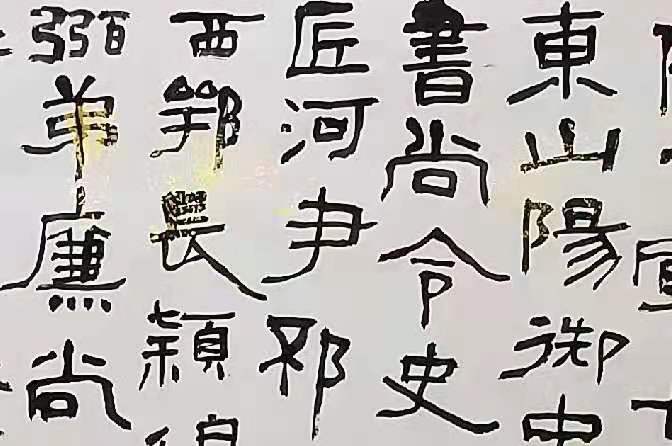 東山陽御史
書尚令史
匠河尹邪
西鄂長穎
弻弟廉尚